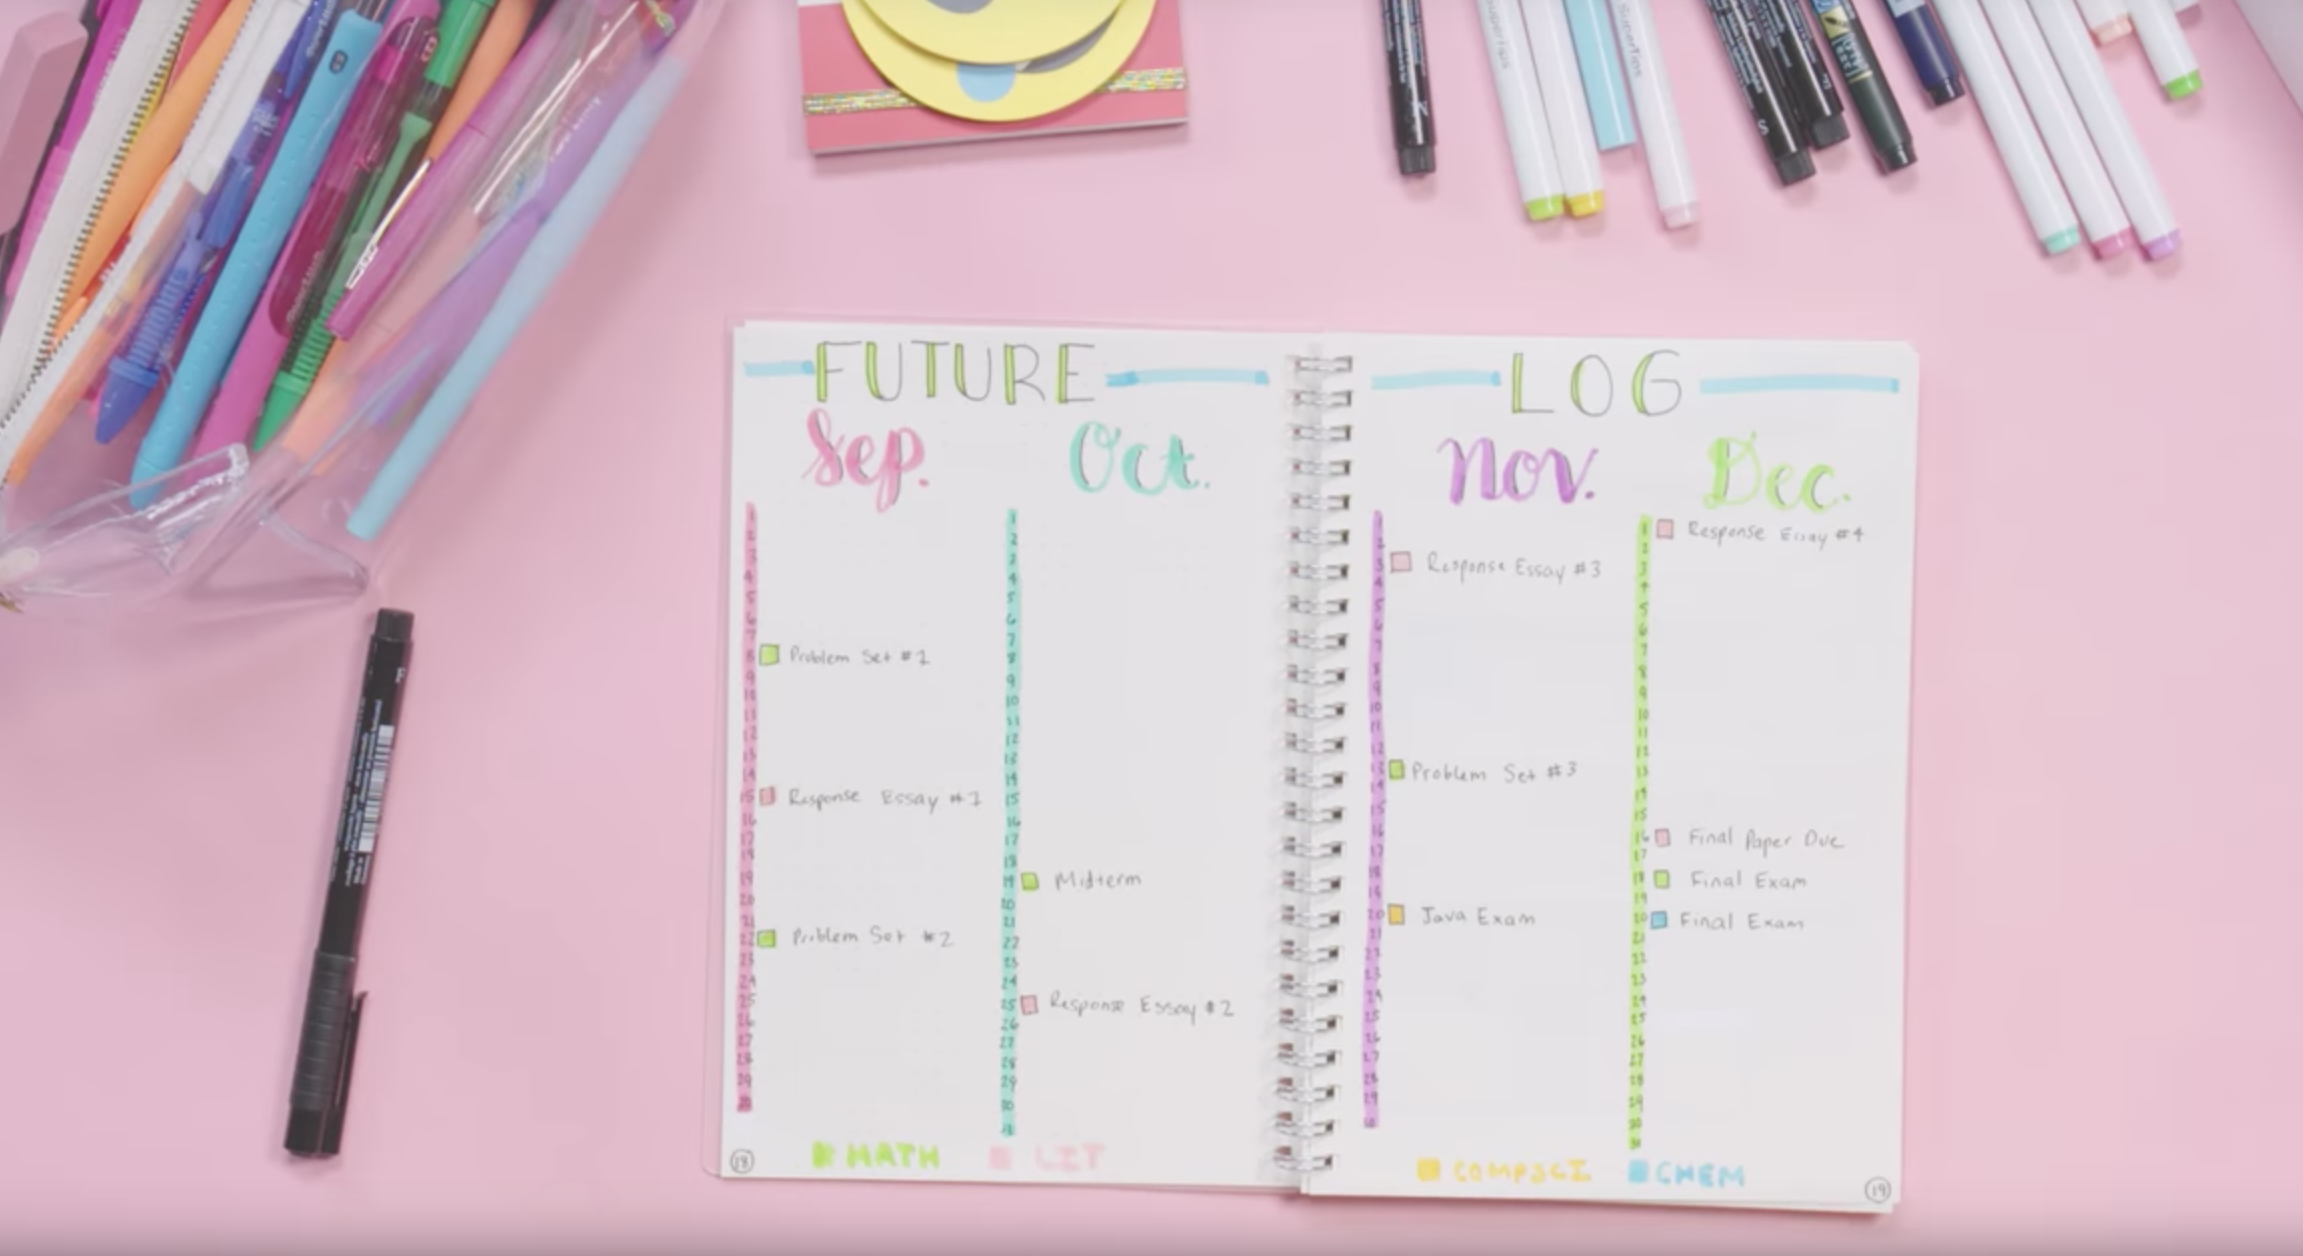 SuperTips
SuperTips
FUTURE LOG
Sep. Oct. Nov. Dec.
1
2
3
4
5
6
7
8 Problem Set #1
9
10
11
12
13
14
15 Response Essay #1
16
17
18
19
20
21
22 Problem Set #2
23
24
25
26
27
28
29
30
1
2
3
4
5
6
7
8
9
10
11
12
13
14
15
16
17
18
19 Midterm
20
21
22
23
24
25 Response Essay #2
26
27
28
29
30
31
1
2
3 Response Essay #3
4
5
6
7
8
9
10
11
12
13 Problem Set #3
14
15
16
17
18
19
20 Java Exam
21
22
23
24
25
26
27
28
29
30
1 Response Essay #4
2
3
4
5
6
7
8
9
10
11
12
13
14
15
16 Final Paper Due
17
18 Final Exam
19
20 Final Exam
21
22
23
24
25
26
27
28
29
30
31
MATH LIT
COMPSCI CHEM
18
19